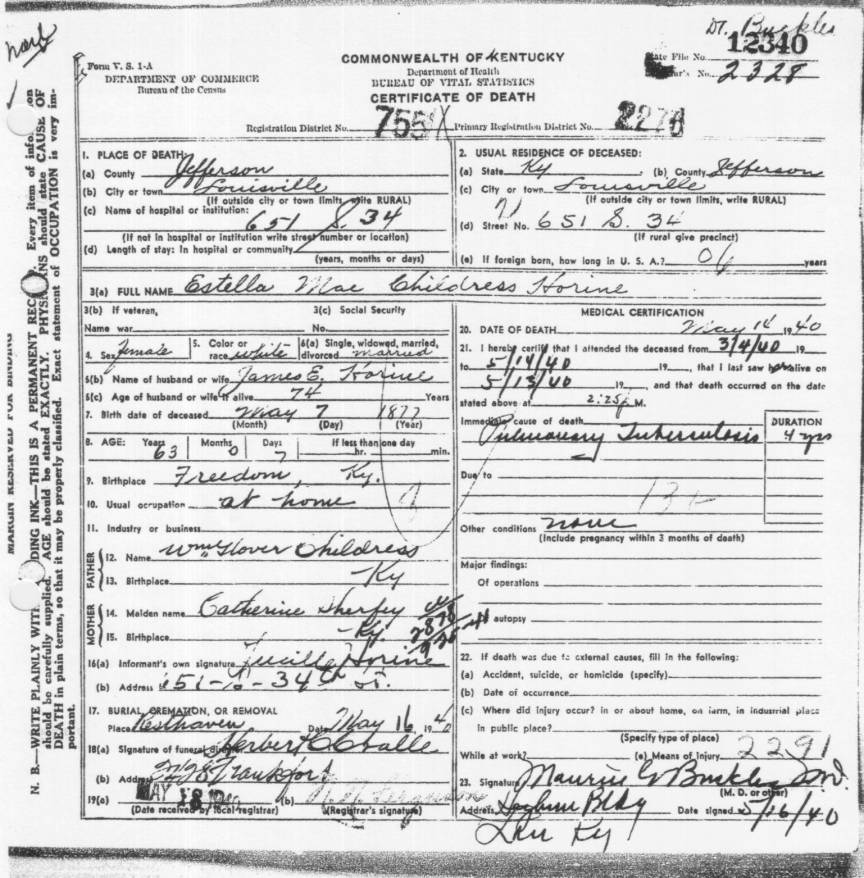 Dr. Buckles
Form V. S. 1-A
DEPARTMENT OF COMMERCE
Bureau of the Census
COMMONWEALTH OF KENTUCKY
Department of Health
BUREAU OF VITAL STATISTICS
CERTIFICATE OF DEATH
State File No. 12340
No. 2328
Registration District No. 755 Primary Registration District No. 2276
MARGIN RESERVED FOR BINDING
N. B.—WRITE PLAINLY WITH DING INK—THIS IS A PERMANENT REC Every item of infor on
should be carefully supplied. AGE should be stated EXACTLY. PHYS NS should state CAUSE OF
DEATH in plain terms, so that it may be properly classified. Exact statement of OCCUPATION is very im-
portant.
1. PLACE OF DEATH:
(a) County Jefferson
(b) City or town Louisville
(If outside city or town limits, write RURAL)
(c) Name of hospital or institution:
651 S. 34
(If not in hospital or institution write street number or location)
(d) Length of stay: In hospital or community
(years, months or days)
2. USUAL RESIDENCE OF DECEASED:
(a) State Ky (b) County Jefferson
(c) City or town Louisville
(If outside city or town limits, write RURAL)
(d) Street No. 651 S. 34
(If rural give precinct)
(e) If foreign born, how long in U. S. A.? years
3(a) FULL NAME Estella Mae Childress Horine
3(b) If veteran,
Name war
3(c) Social Security
No.
4. Sex female
5. Color or
race white
6(a) Single, widowed, married,
divorced married
6(b) Name of husband or wife James E. Horine
6(c) Age of husband or wife if alive 74 Years
7. Birth date of deceased May 7 1877
(Month) (Day) (Year)
8. AGE: Years Months Days If less than one day
63 0 7 hr. min.
9. Birthplace Freedom, Ky.
10. Usual occupation at home
11. Industry or business
FATHER
12. Name Wm Glover Childress
13. Birthplace Ky
MOTHER
14. Maiden name Catherine Sherfey
15. Birthplace Ky.
16(a) Informant's own signature Lucille Horine
(b) Address 651-S-34th St.
17. BURIAL, CREMATION, OR REMOVAL
Place Resthaven Date May 16, 1940
18(a) Signature of funeral director Herbert C Cralle
(b) Address Frankfort
19(a) MAY 18 1940 (b)
(Date received by local registrar) (Registrar's signature)
MEDICAL CERTIFICATION
20. DATE OF DEATH May 14 1940
21. I hereby certify that I attended the deceased from 3/4/40 19
to 5/14/40 19, that I last saw her alive on
5/13/40 19, and that death occurred on the date
stated above at 2:25 P M.
Immediate cause of death DURATION
Pulmonary Tuberculosis 4 yrs
Due to
Other conditions none
(Include pregnancy within 3 months of death)
Major findings:
Of operations
autopsy
22. If death was due to external causes, fill in the following:
(a) Accident, suicide, or homicide (specify)
(b) Date of occurrence
(c) Where did injury occur? in or about home, on farm, in industrial place
in public place?
(Specify type of place)
While at work? (e) Means of injury 2291
23. Signature Maurice G Buckles MD
(M. D. or other)
Address Bldg Date signed 5/16/40
Lou Ky